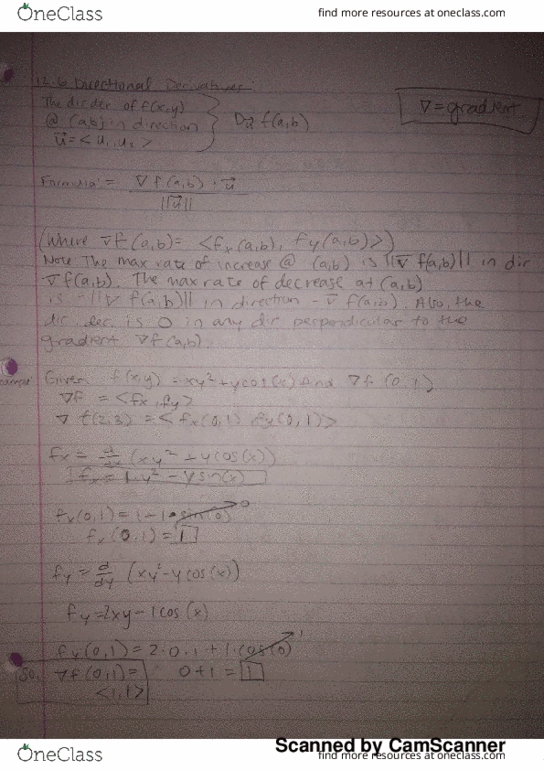 OneClass
find more resources at oneclass.com
12.6 Directional Derivatives:
The dir der of f(x,y)
@ (a,b) in direction
u = < u₁, u₂ >
Du f(a,b)
∇ = gradient
Formula = ∇f(a,b) · u
||u||
(Where ∇f(a,b) = <fx(a,b), fy(a,b)>)
Note The max rate of increase @ (a,b) is ||∇ f(a,b)|| in dir
∇f(a,b). The max rate of decrease at (a,b)
is -||∇ f(a,b)|| in direction - ∇ f(a,b). Also, the
dir. der. is 0 in any dir perpendicular to the
gradient ∇f(a,b)
Given f(x,y) = xy² + ycos(x) find ∇f (0,1)
∇f = <fx, fy>
∇ f(2,3) = < fx(0,1) fy(0,1)>
fx = d/dx (xy² + ycos(x))
fx = 1·y² - ysin(x)
fx(0,1) = 1 - 1·sin(0) 0
fx (0,1) = 1
fy = d/dy (xy² - ycos(x))
fy = 2xy - 1cos(x)
fy(0,1) = 2·0·1 + 1·cos(0) 1
So, ∇f(0,1) = 0+1 = 1
<1,1>
Scanned by CamScanner
OneClass
find more resources at oneclass.com